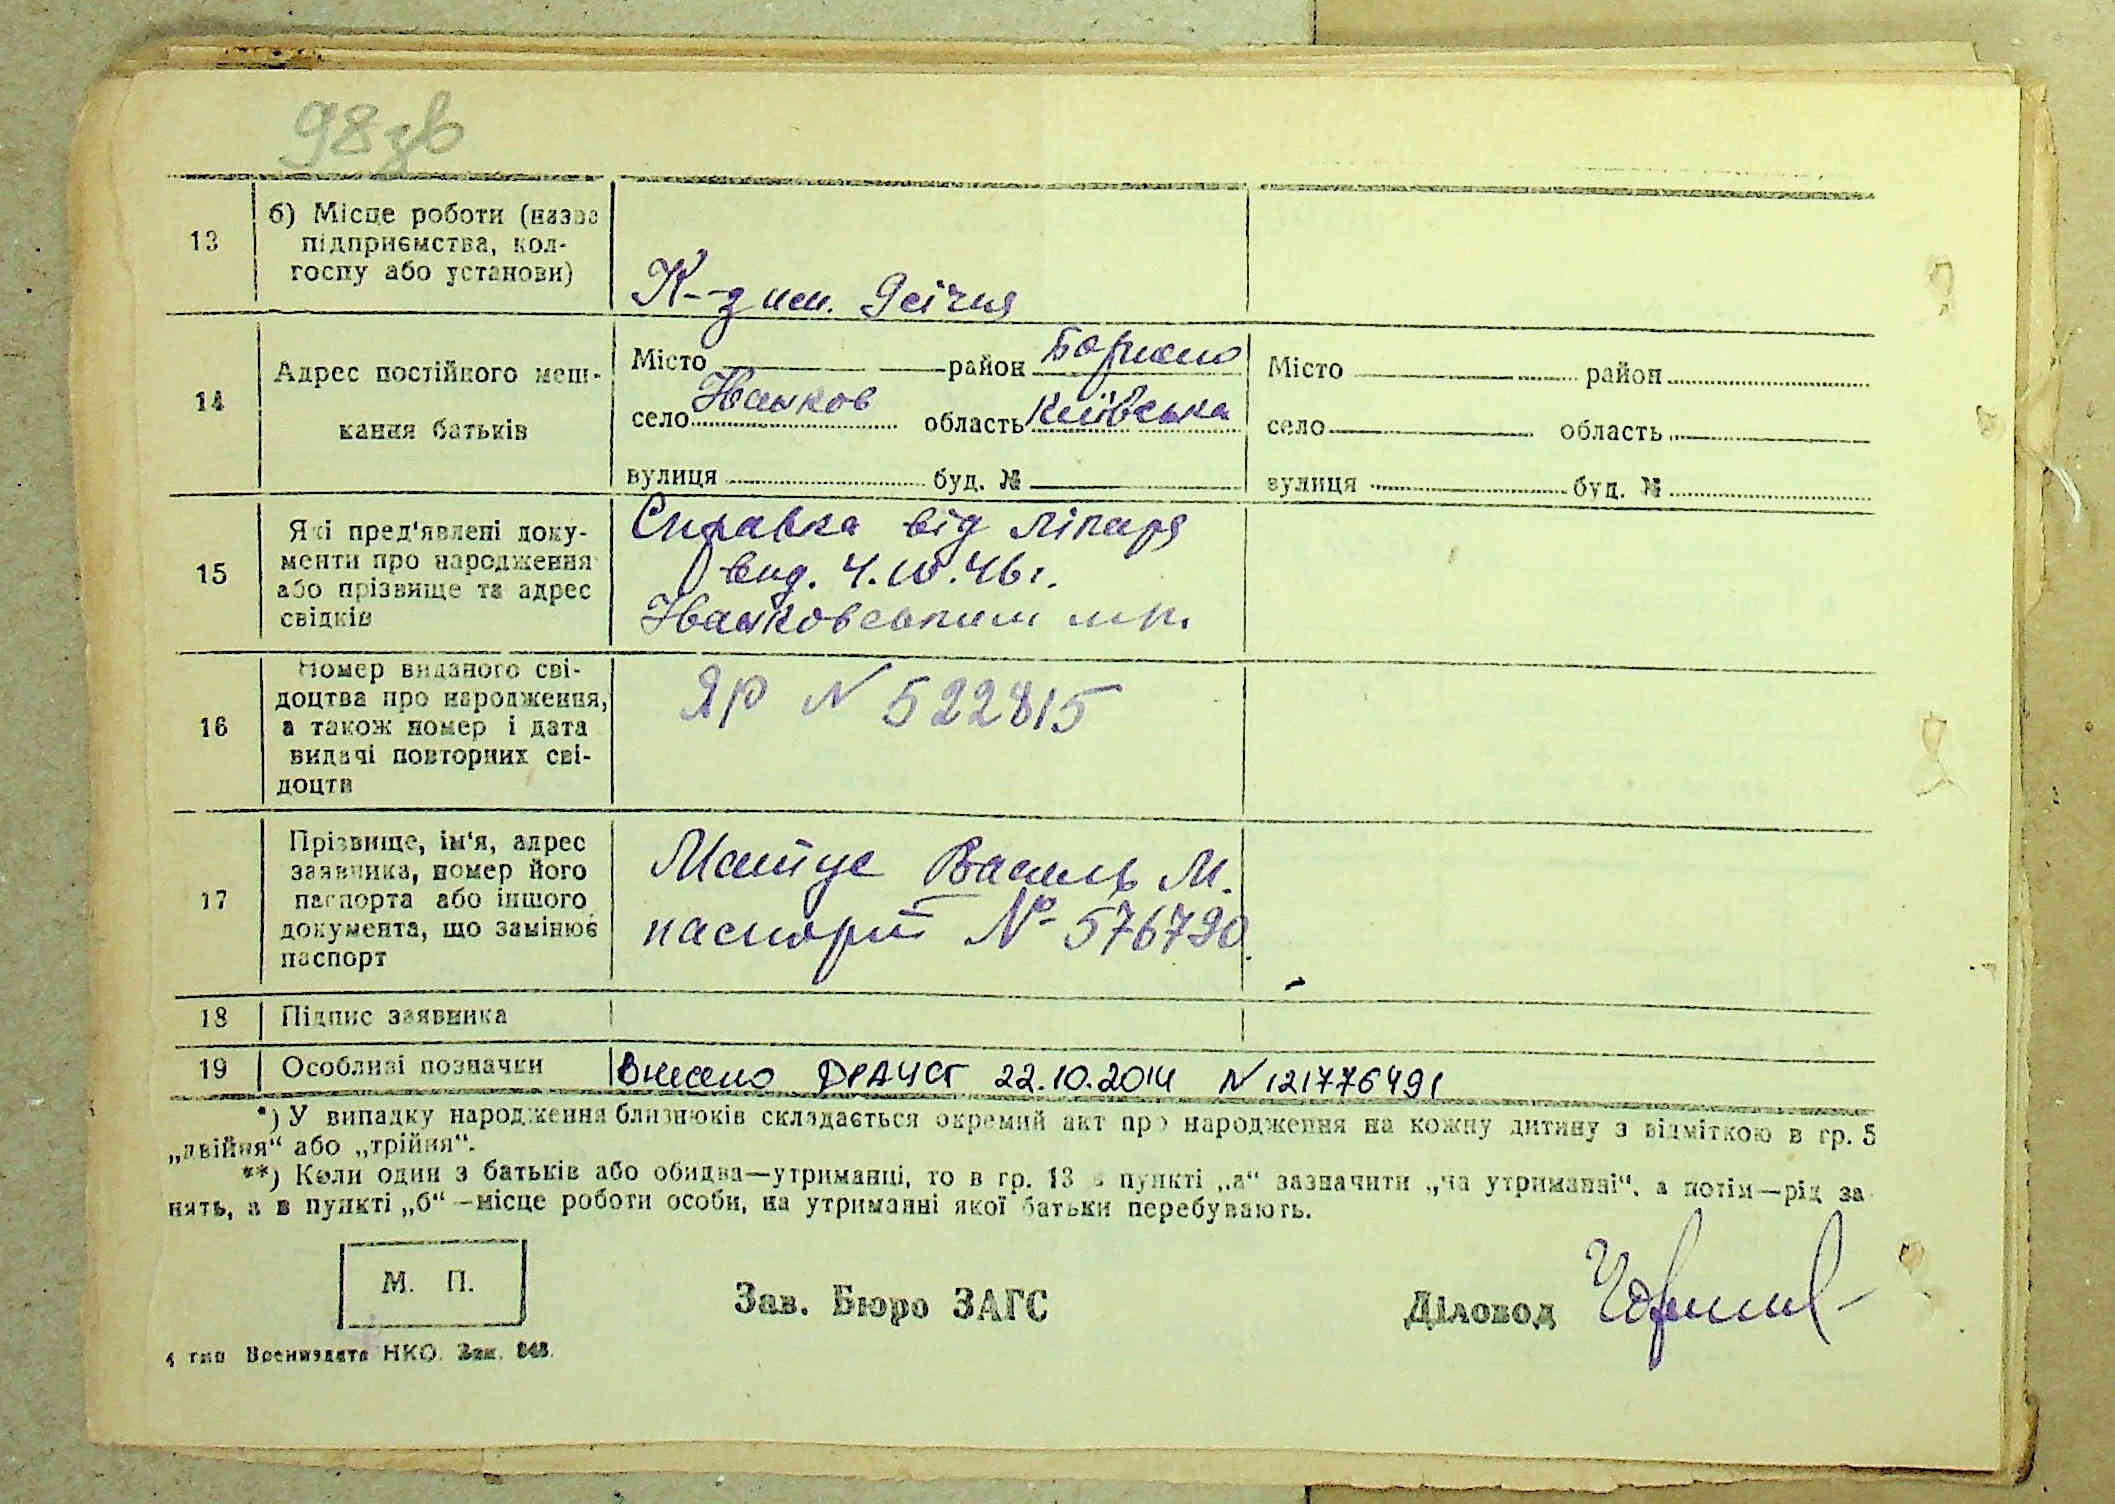 98зв
13
б) Місце роботи (назва
підприємства, кол-
госпу або установи)
К-з им. 9 січня
14
Адрес постійного меш-
кання батьків
Місто район
село Іванков область Київська
вулиця буд. №
Місто район
село область
вулиця буд. №
15
Які пред'явлені доку-
менти про народження
або прізвище та адрес
свідків
Справка від лікаря
вид. 4. 46 г.
Іванковським
16
Номер виданого сві-
доцтва про народження,
а також номер і дата
видачі повторних сві-
доцтв
ЯР N 522815
17
Прізвище, ім'я, адрес
заявника, номер його
паспорта або іншого
документа, що замінює
паспорт
Василь М.
паспорт № 576790
18
Підпис заявника
19
Особливі позначки
Внесено ДРАЦСГ 22.10.2014 N 121776491
*) У випадку народження близнюків складається окремий акт про народження на кожну дитину з відміткою в гр. 5
„двійня“ або „трійня“.
**) Коли один з батьків або обидва—утриманці, то в гр. 13 в пункті „а“ зазначити „на утриманні“, а потім—рід за
нять, а в пункті „б“ —місце роботи особи, на утриманні якої батьки перебувають.
М. П.
Зав. Бюро ЗАГС
Діловод
4 тип Воениздата НКО. Зак. 848.